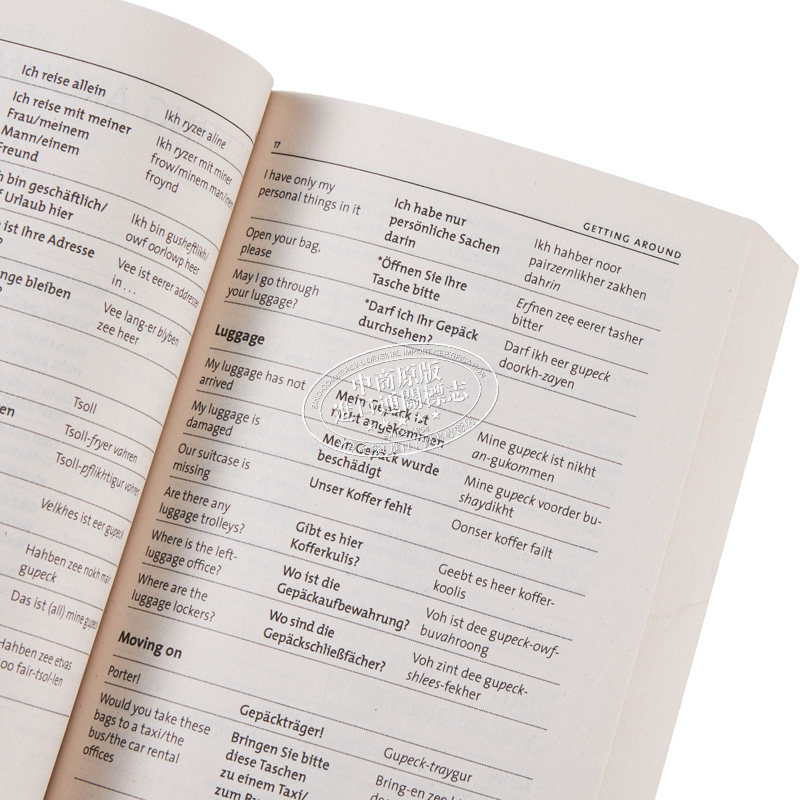 Ich reise allein
Ikh ryzer aline
Ich reise mit meiner
Frau/meinem
Mann/einem
Freund
Ikh ryzer mit miner
frow/minem man/
froynd
bin geschäftlich/
Urlaub hier
Ikh bin gusheftlikh/
owf oorlowp heer
ist Ihre Adresse
?
Vee ist eerer addresser
in...
bleiben
?
Vee lang-er blyben
zee heer
Tsoll
Tsoll-fryer vahren
Tsoll-pflikhtigur vahren
Velkhes ist eer gupeck
Hahben zee nokh
gupeck
Das ist (all) mine gupeck
Hahben zee etvas
fair-tsol-len
17
GETTING AROUND
I have only my
personal things in it
Ich habe nur
persönliche Sachen
darin
Ikh hahber noor
pairzernlikher zakhen
dahrin
Open your bag,
please
*Öffnen Sie Ihre
Tasche bitte
Erfnen zee eerer tasher
bitter
May I go through
your luggage?
*Darf ich Ihr Gepäck
durchsehen?
Darf ikh eer gupeck
doorkh-zayen
Luggage
My luggage has not
arrived
Mein Gepäck ist
nicht angekommen
Mine gupeck ist nikht
an-gukommen
My luggage is
damaged
Mein Gepäck wurde
beschädigt
Mine gupeck voorder bu-
shaydikht
Our suitcase is
missing
Unser Koffer fehlt
Oonser koffer failt
Are there any
luggage trolleys?
Gibt es hier
Kofferkulis?
Geebt es heer koffer-
koolis
Where is the left-
luggage office?
Wo ist die
Gepäckaufbewahrung?
Voh ist dee gupeck-owf-
buvahroong
Where are the
luggage lockers?
Wo sind die
Gepäckschließfächer?
Voh zint dee gupeck-
shlees-fekher
Moving on
Porter!
Gepäckträger!
Gupeck-traygur
Would you take these
bags to a taxi/the
bus/the car rental
offices
Bringen Sie bitte
diese Taschen
zu einem Taxi/
zum
Bring-en zee